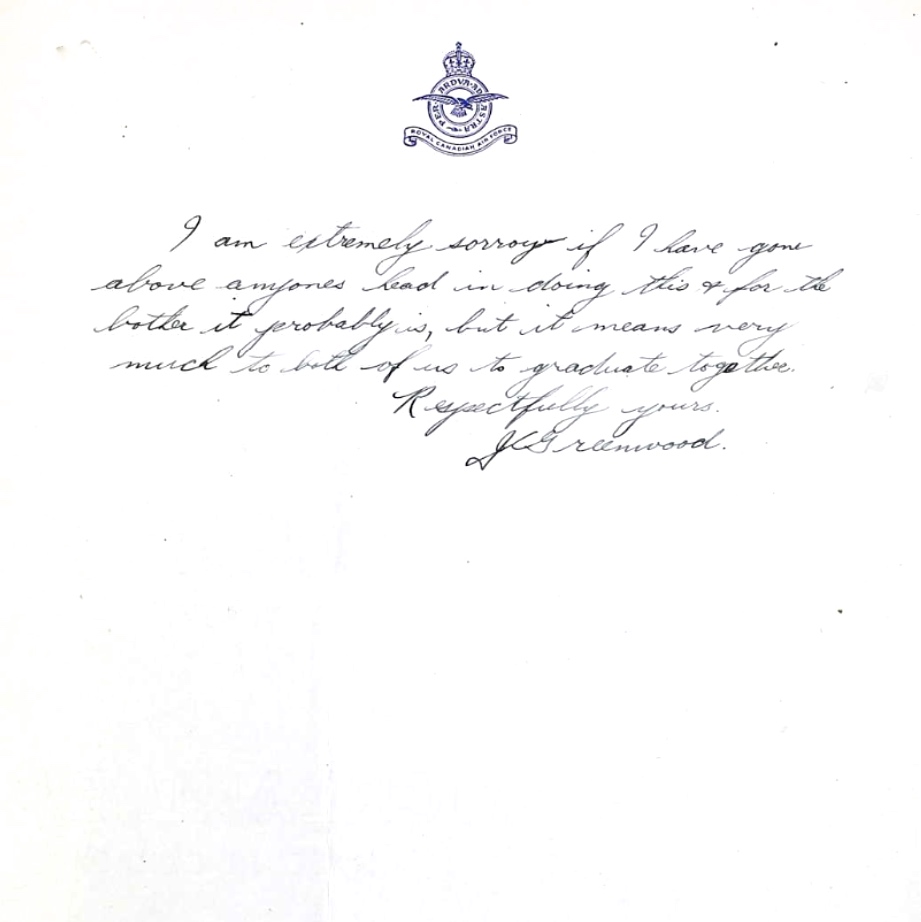 PER ARDVA AD ASTRA
ROYAL CANADIAN AIR FORCE
I am extremely sorry if I have gone
above anyones head in doing this & for the
bother it probably is, but it means very
much to both of us to graduate together.
Respectfully yours.
JKGreenwood.